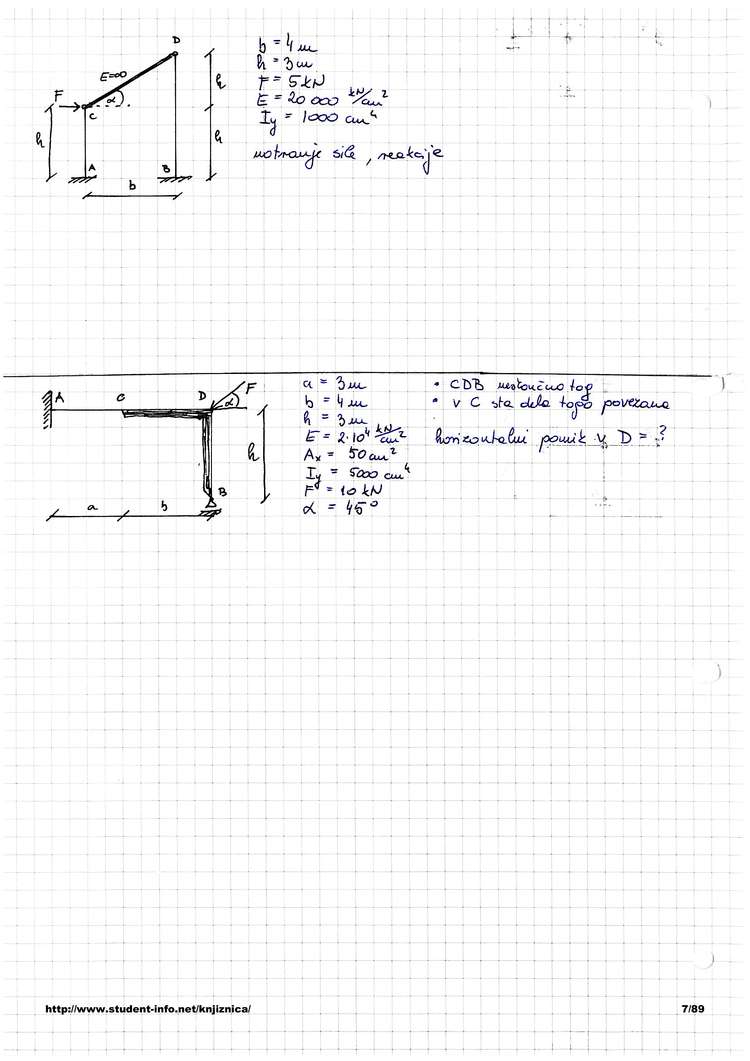 D
E=∞
F
α
C
h
h
h
A
B
b
b = 4 m
h = 3 m
F = 5 kN
E = 20 000 kN/cm²
Iy = 1000 cm⁴
notranje sile, reakcije
A
C
D
F
α
h
B
a
b
a = 3 m
b = 4 m
h = 3 m
E = 2·10⁴ kN/cm²
Ax = 50 cm²
Iy = 5000 cm⁴
F = 10 kN
α = 45°
• CDB neskončno tog
• v C sta dela togo povezana
horizontalni pomik v D = ?
http://www.student-info.net/knjiznica/
7/89